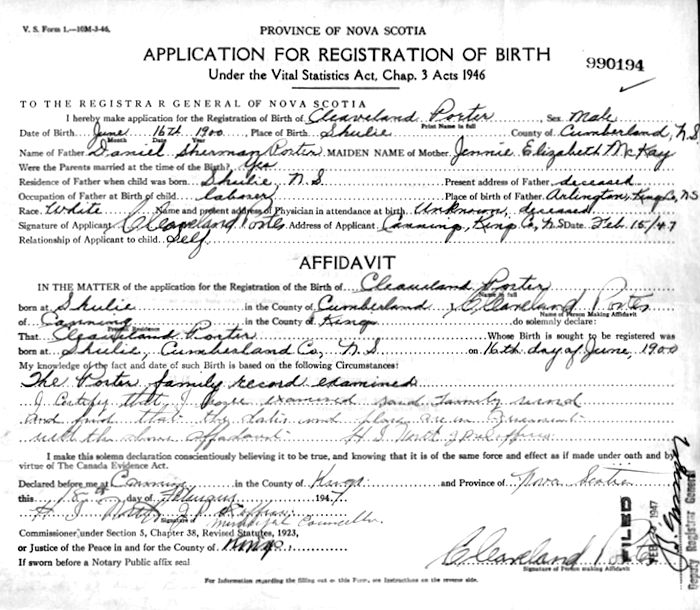 V. S. Form 1.—10M-3-46.
PROVINCE OF NOVA SCOTIA
APPLICATION FOR REGISTRATION OF BIRTH
Under the Vital Statistics Act, Chap. 3 Acts 1946
990194
TO THE REGISTRAR GENERAL OF NOVA SCOTIA
I hereby make application for the Registration of Birth of Cleaveland Porter Sex Male
Print Name in full
Date of Birth June 16th 1900 Place of Birth Shulie County of Cumberland, N.S
Month Date Year
Name of Father Daniel Sherman Porter MAIDEN NAME of Mother Jennie Elizabeth McKay
Were the Parents married at the time of the Birth? Yes
Residence of Father when child was born Shulie, N.S Present address of Father deceased
Occupation of Father at Birth of child laborer Place of birth of Father Arlington, Kings Co, N.S
Race White Name and present address of Physician in attendance at birth Unknown, deceased
Signature of Applicant Cleaveland Porter Address of Applicant Canning, Kings Co, N.S Date Feb. 15/47
Relationship of Applicant to child Self
AFFIDAVIT
IN THE MATTER of the application for the Registration of Birth of Cleaveland Porter
Name in full
born at Shulie in the County of Cumberland I, Cleaveland Porter
Name of Person Making Affidavit
of Canning in the County of Kings do solemnly declare:
Present Residence
That Cleaveland Porter Whose Birth is sought to be registered was
born at Shulie, Cumberland Co, N.S on 16th day of June, 1900
My knowledge of the fact and date of such Birth is based on the following Circumstances:
The Porter family record examined
I certify that I have examined said family record
and find that the dates and place are in agreement
with the above affidavit
I make this solemn declaration conscientiously believing it to be true, and knowing that it is of the same force and effect as if made under oath and by
virtue of The Canada Evidence Act.
Declared before me at Canning in the County of Kings and Province of Nova Scotia
this 15th day of February 1947
Signature of
Municipal Councillor
Commissioner under Section 5, Chapter 38, Revised Statutes, 1923,
or Justice of the Peace in and for the County of Kings
If sworn before a Notary Public affix seal
Cleaveland Porter
Signature of Person making Affidavit
FILED
FEB 1947
Deputy Registrar General
For Information regarding the filling out of this Form, see Instructions on the reverse side.